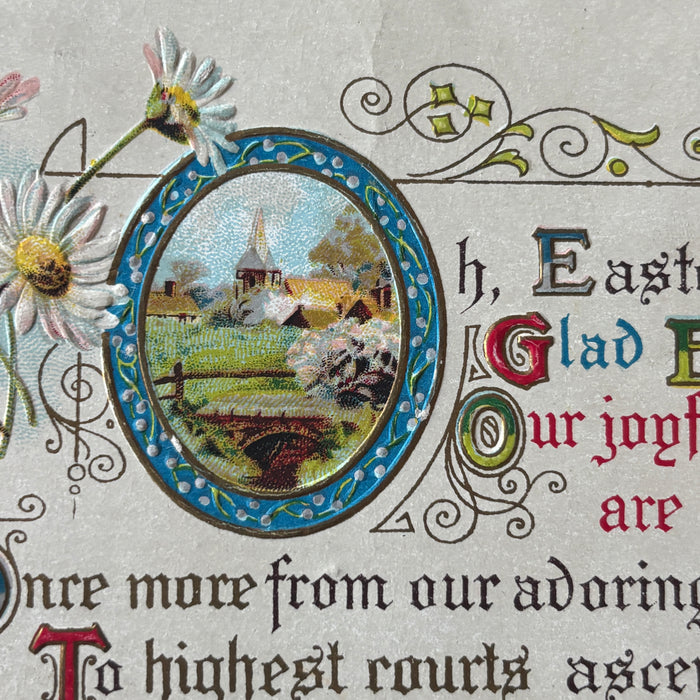 Oh, East
Glad E
Our joyf
are
Once more from our adoring
To highest courts ascen